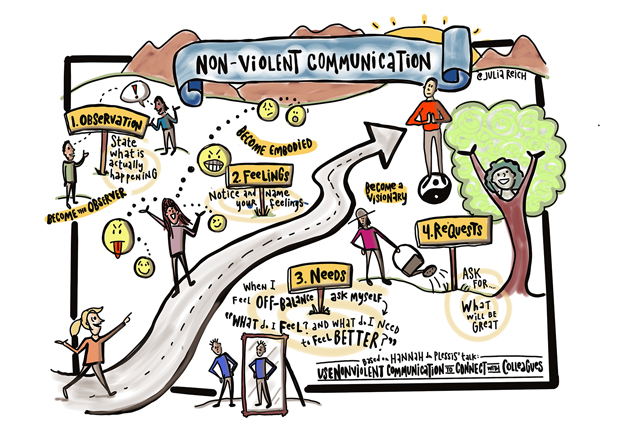 NON-VIOLENT COMMUNICATION
@JULIA REICH
!
1. OBSERVATION
State
what is
actually
happening
BECOME THE OBSERVER
BECOME EMBODIED
2 FEELINGS
Notice and Name
your Feelings
BECOME A
VISIONARY
4. REQUESTS
ASK
FOR...
WHAT
WILL BE
GREAT
3. NEEDS
WHEN I
FEEL OFF-BALANCE ASK MYSELF,
"WHAT do I FEEL? AND WHAT do I NEED
to FEEL BETTER?"
BASED on HANNAH du PLESSIS' talk:
USE NONVIOLENT COMMUNICATION TO CONNECT WITH COLLEAGUES